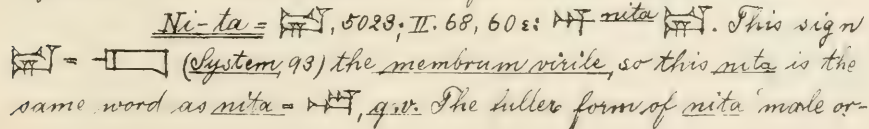 Ni-ta = , 5023; II. 68, 60 ε: nita . This sign
= (System, 93) the membrum virile, so this nita is the
same word as nita = , q.v. The fuller form of nita 'male or-